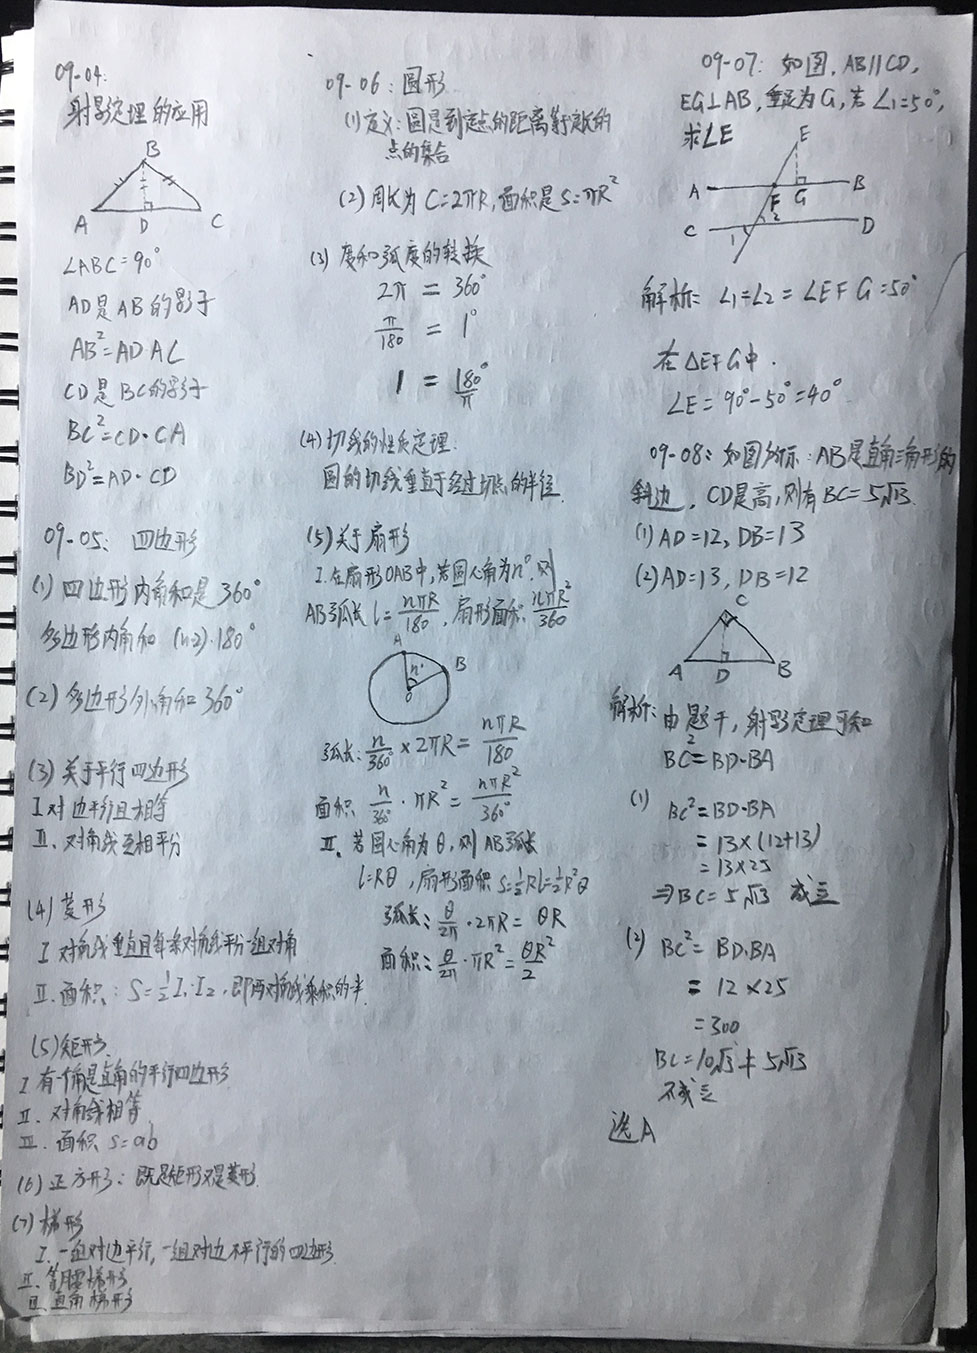 09-04:
射影定理的应用
B
A D C
∠ABC=90°
AD是AB的影子
AB²=AD·AC
CD是BC的影子
BC²=CD·CA
BD²=AD·CD
09-05: 四边形
(1) 四边形内角和是360°
多边形内角和 (n-2)·180°
(2) 多边形外角和360°
(3) 关于平行四边形
I 对边平行且相等
II、对角线互相平分
(4) 菱形
I 对角线垂直且每条对角线平分一组对角
II.面积: S=½I₁·I₂,即两对角线乘积的一半.
(5) 矩形.
I 有一个角是直角的平行四边形.
II. 对角线相等
III. 面积 S=ab
(6) 正方形: 既是矩形又是菱形.
(7) 梯形
I. 一组对边平行,一组对边不平行的四边形.
II、等腰梯形
III 直角梯形
09-06: 圆形
(1) 定义: 圆是到定点的距离等于定长的
点的集合
(2) 周长为C=2πR,面积是S=πR²
(3) 度和弧度的转换
2π = 360°
π/180 = 1°
1 = 180°/π
(4) 切线的性质定理.
圆的切线垂直于经过切点的半径.
(5) 关于扇形
I.在扇形OAB中,若圆心角为n°.则
AB弧长 l=nπR/180, 扇形面积:nπR²/360
A
B
n°
O
弧长: n/360° × 2πR = nπR/180
面积 n/360° · πR² = nπR²/360°
II. 若圆心角为θ,则AB弧长
l=Rθ,扇形面积 S=½Rl=½R²θ
弧长: θ/2π · 2πR = θR
面积: θ/2π · πR² = θR²/2
09-07: 如图,AB∥CD,
EG⊥AB,垂足为G,若∠1=50°,
求∠E
E
A F G B
C 2 D
1
解析: ∠1=∠2=∠EFG=50°
在△EFG中.
∠E=90°-50°=40°
09-08: 如图所示: AB是直角三角形的
斜边, CD是高,则有BC=5√13.
(1) AD=12, DB=13
(2) AD=13, DB=12
C
A D B
解析: 由题干,射影定理可知
BC²=BD·BA
(1) BC²=BD·BA
=13×(12+13)
=13×25
⇒BC=5√13 成立
(2) BC²=BD·BA
=12×25
=300
BC=10√3≠5√13
不成立
选A